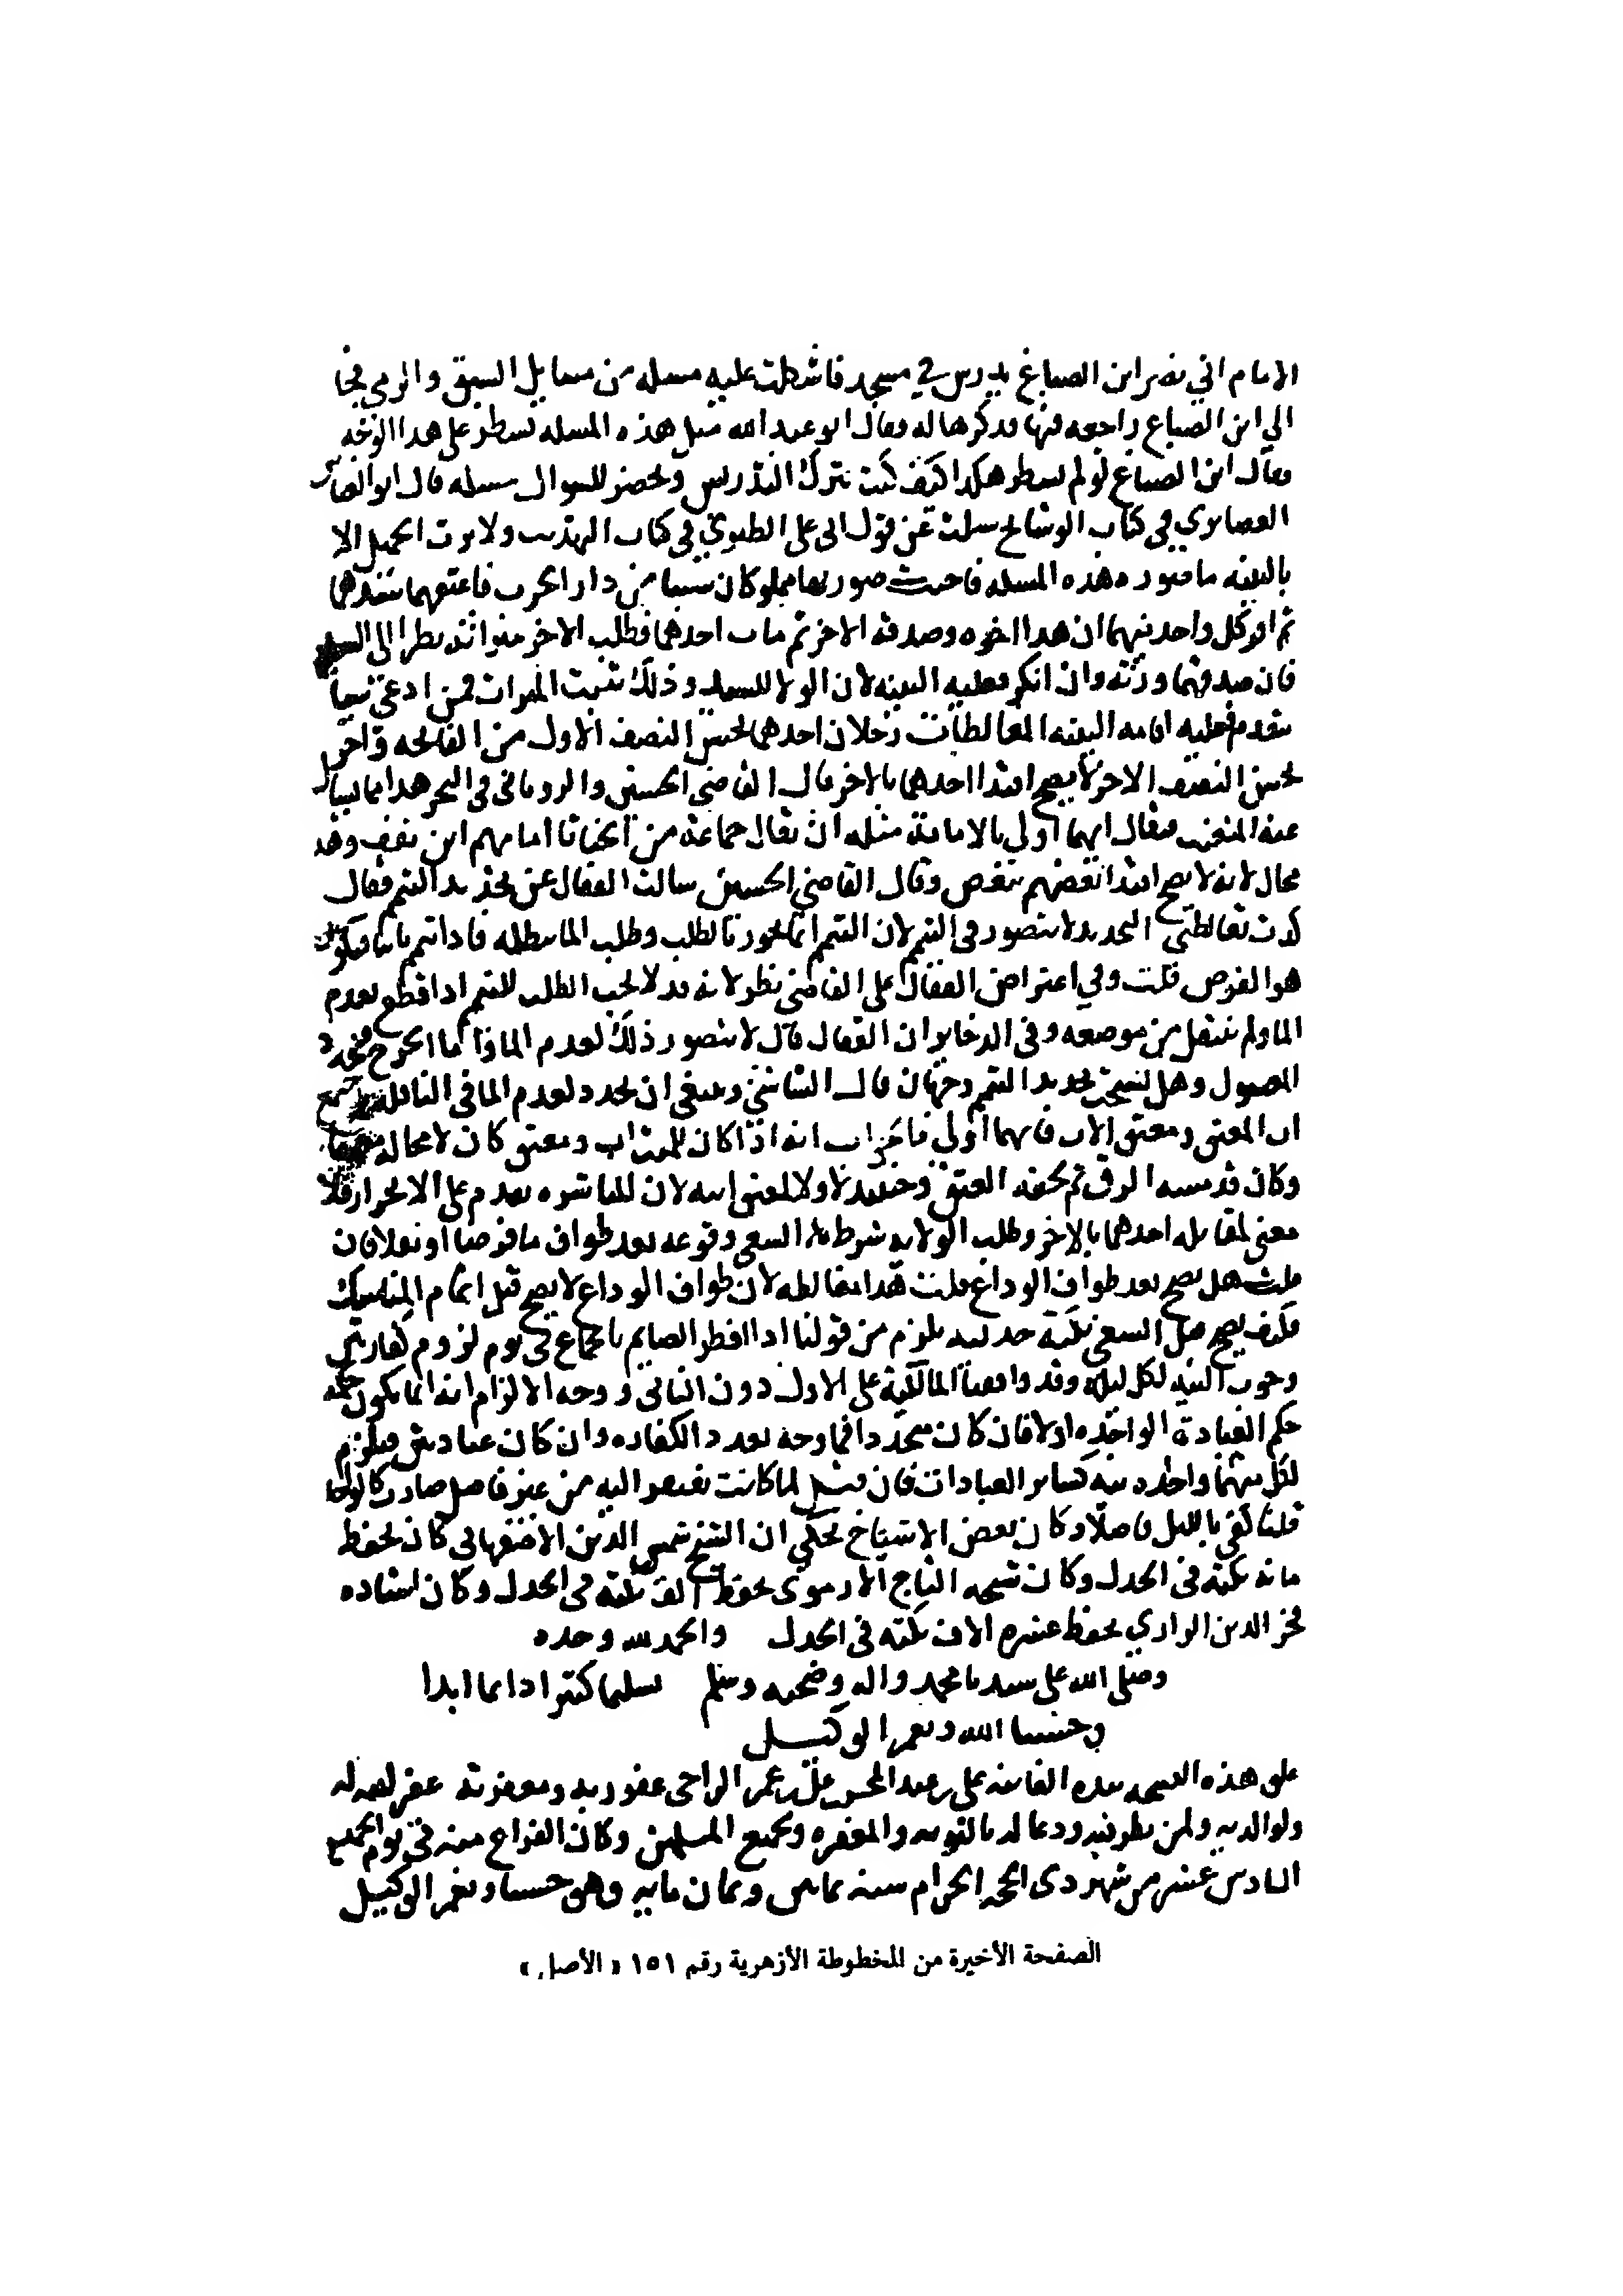 الامام ابي نصر ابن الصباغ يدرس في مسجد فاشكلت عليه مسله من مسايل السبق والرمي فجا
الي ابن الصباغ راجعه فيها فذكرها له فقال ابو عبد الله مثل هذه المسله تسطر على هذا الوجه
فقال ابن الصباغ لو لم تسطر هكذا كيف كنت تترك التدريس وتحضر للسوال مسله قال ابو
في كتاب الوشايح سيلت عن قول ابي علي الطبري في كتاب ولا يرث الحميل الا
بالبينه ما صوره هذه المسله فاجبت صورتها مملوكان سبيا من دار الحرب فاعتقهما سيدهما
ثم اقر كل واحد منهما ان هذا اخوه وصدقه الاخر ثم مات احدهما فطلب الاخر ميراثه نظر الى السيد
فان صدقهما ورثه وان انكر فعليه البينه لان الولا للسيد وذلك يثبت الميراث فمن ادعى شيا
يتقدم فعليه اقامه البينه المغالطات رجلان احدهما يحسن النصف الاول من الفاتحه واخر
يحسن النصف الاخر لا يصح اقتدا احدهما بالاخر قال القاضي الحسين والروياني في البحر هذا مما يسال
عنه فيقال ايهما اولي بالامامة مثله ان يقال جماعة من امامهم اين يقف وهذ
محال لانه لا يصح اقتدا بعضهم ببعض وقال القاضي الحسين سالت القفال عن تجديد التيمم فقال
كدت تغالطني التجديد لا يتصور في التيمم لان التيمم انما يجوز بالطلب وطلب الما يبطله فاذا تيمم ثانيا فيكون
هو الفرض قلت وفي اعتراض القفال على القاضي نظر لانه قد لا يجب الطلب للتيمم اذا قطع بعدم
الما ولم ينتقل من موضعه وفي الذخاير ان القفال قال لا يتصور ذلك لعدم الماء اما الجرح
وهل يستحب تجديد التيمم وجهان قال الشاشي وينبغي ان يجدد لعدم الما في النافله
اب المعتق ومعتق الاب فايهما اولي فاجراب انه اذا كان للميت اب ومعتق كان لا محاله
وكان قد مسه الرق ثم لحقه العتق وحينيذ لا ولا لمعتق ابيه لان المباشره تقدم على الانجرار فلا
معنى لمقابله احدهما بالاخر وطلب الولايه شرط السعي وقوعه بعد طواف ما فرضا او نفلا فان
قلت هل يصح بعد طواف الوداع قلت هذا مغالطه لان طواف الوداع لا يصح قبل اتمام المناسك
فكيف يصح قبل السعي نكتة جدليه يلزم من قولنا اذا افطر الصايم بالجماع في يوم لزوم كفارتين
وجوب النيه لكل ليله وقد وافقنا المالكية على الاول دون الثاني ووجه الالزام انه اما يكون حكمه
حكم العبادة الواحده او لا فان كان متحدا فما وجه تعدد الكفاره وان كان عبادتين فيلزم
لكل منهما واحده نيه كساير العبادات فان قيل لما كانت بعضها اليه من غير فاصل صارت كالواحدة
قلنا كفى بالليل فاصلا وكان بعض الاشياخ يحكي ان الشيخ شمس الدين الاصفهاني كان يحفظ
مايه نكته في الجدل وكان شيخه التاج الارموي يحفظ الف نكته في الجدل وكان استاده
فخر الدين الرازي يحفظ عشره الاف نكته في الجدل والحمد لله وحده
وصلى الله على سيدنا محمد واله وصحبه وسلم تسليما كثيرا دايما ابدا
وحسبنا الله ونعم الوكيل
علق هذه النسخه بيده الفانيه علي بن عبد المحسن بن عمر الراجي عفو ربه ومغفرته غفر الله له
ولوالديه ولمن نظر فيه ودعا له بالتوبه والمغفره ولجميع المسلمين وكان الفراغ منه في يوم الجمعه
السادس عشر من شهر ذي الحجه الحرام سنه ثمانين وثمان مايه وهو حسبنا ونعم الوكيل
الصفحة الأخيرة من المخطوطة الأزهرية رقم ١٥١ « الأصل »